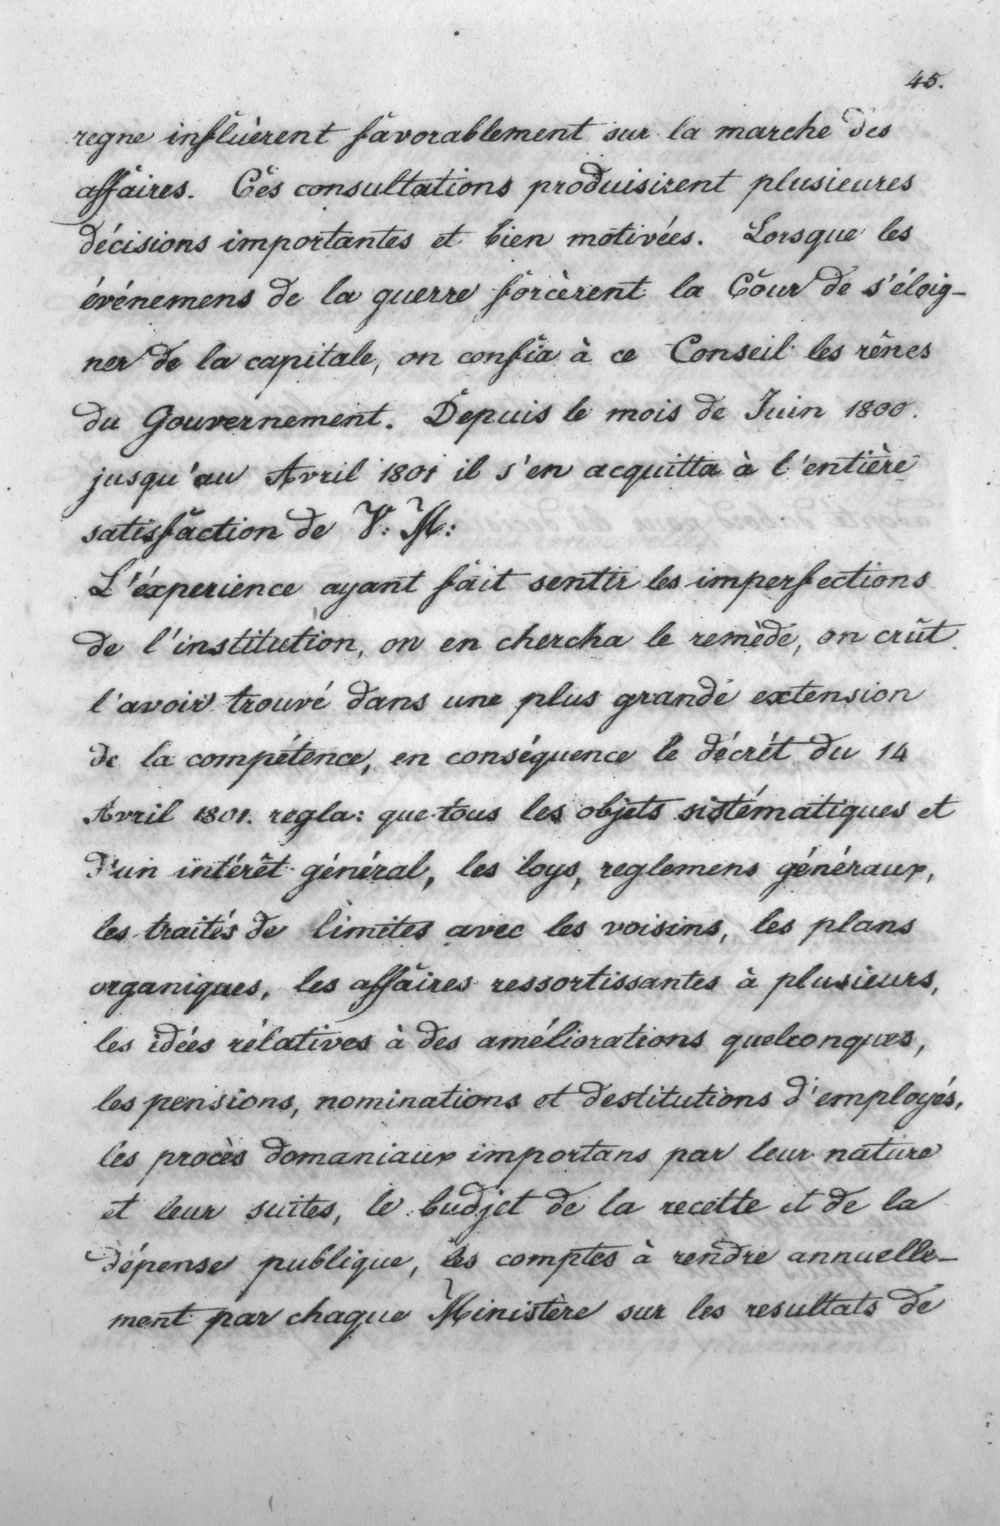 45.
regne influèrent favorablement sur la marche des
affaires. Ces consultations produisirent plusieures
décisions importantes et bien motivées. Lorsque les
événemens de la guerre forcèrent la Cour de s'éloig-
ner de la capitale, on confia à ce Conseil les rênes
du Gouvernement. Depuis le mois de Juin 1800.
jusqu'au Avril 1801 il s'en acquitta à l'entière
satisfaction de V: M:
L'éxperience ayant fait sentir les imperfections
de l'institution, on en chercha le remède, on crût
l'avoir trouvé dans une plus grande extension
de la compétence, en conséquence le décrét du 14
Avril 1801. regla: que tous les objets sistématiques et
d'un intérêt général, les loys, reglemens généraux,
les traités de limites avec les voisins, les plans
organiques, les affaires ressortissantes à plusieurs,
les idées rélatives à des améliorations quelconques,
les pensions, nominations et destitutions d'employés,
les procès domaniaux importans par leur nature
et leur suites, le budjet de la recette et de la
dépense publique, les comptes à rendre annuelle-
ment par chaque Ministère sur les resultats de